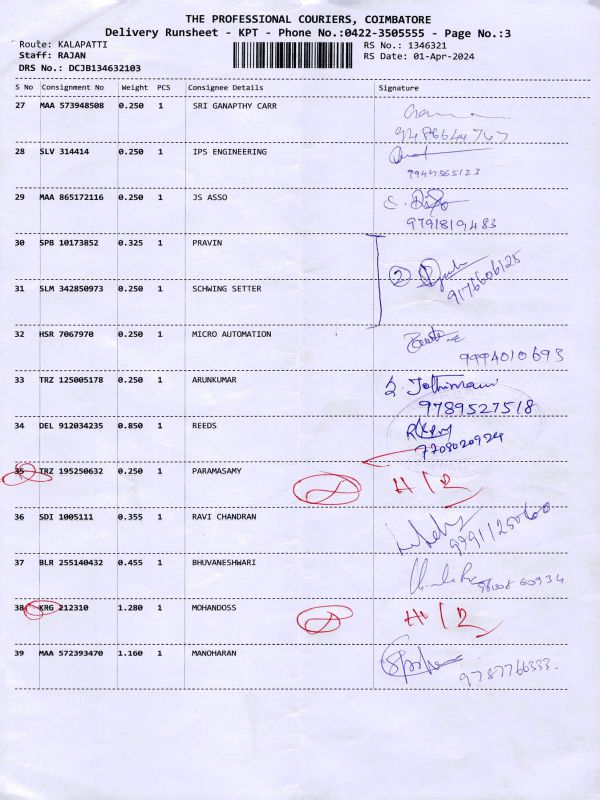 THE PROFESSIONAL COURIERS, COIMBATORE
Delivery Runsheet - KPT - Phone No.:0422-3505555 - Page No.:3
Route: KALAPATTI RS No.: 1346321
Staff: RAJAN RS Date: 01-Apr-2024
DRS No.: DCJB134632103
S No Consignment No Weight PCS Consignee Details Signature
27 MAA 573948508 0.250 1 SRI GANAPTHY CARR
28 SLV 314414 0.250 1 IPS ENGINEERING
9944565123
29 MAA 865172116 0.250 1 JS ASSO
9791819483
30 SPB 10173852 0.325 1 PRAVIN
2
9176606125
31 SLM 342850973 0.250 1 SCHWING SETTER
32 HSR 7067970 0.250 1 MICRO AUTOMATION
9994010693
33 TRZ 125005178 0.250 1 ARUNKUMAR
9789527518
34 DEL 912034235 0.850 1 REEDS
7708020924
35 TRZ 195250632 0.250 1 PARAMASAMY
36 SDI 1005111 0.355 1 RAVI CHANDRAN
37 BLR 255140432 0.455 1 BHUVANESHWARI
38 KRG 212310 1.280 1 MOHANDOSS
39 MAA 572393470 1.160 1 MANOHARAN
9787766333.